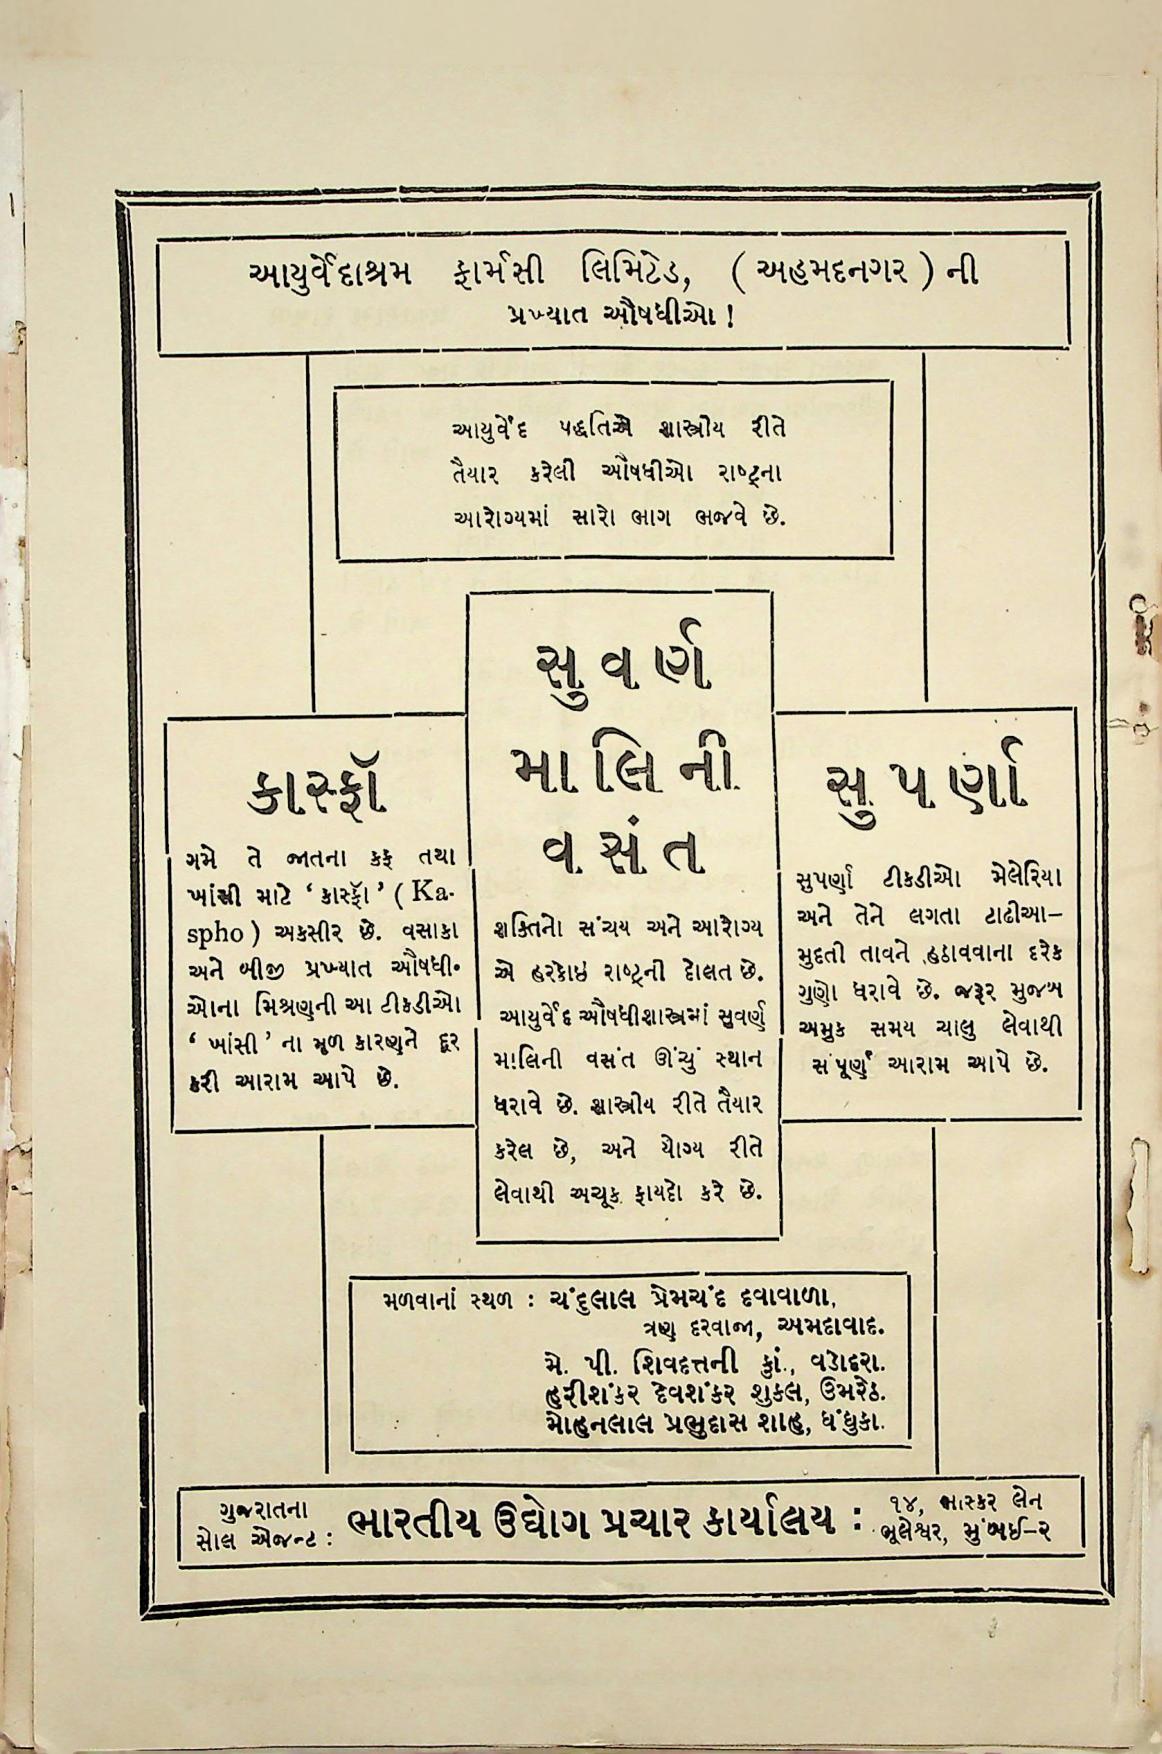 આયુર્વેદાશ્રમ ફાર્મસી લિમિટેડ, ( અહમદનગર ) ની
પ્રખ્યાત ઔષધીઓ !
આયુર્વેદ પદ્ધતિએ શાસ્ત્રીય રીતે
તૈયાર કરેલી ઔષધીઓ રાષ્ટ્રના
આરોગ્યમાં સારો ભાગ ભજવે છે.
કાસ્ફૉ
ગમે તે જાતના કફ તથા
ખાંસી માટે ‘ કાસ્ફૉ ’ ( Ka-
spho ) અકસીર છે. વસાકા
અને બીજી પ્રખ્યાત ઔષધી-
ઓના મિશ્રણની આ ટીકડીઓ
‘ ખાંસી ’ ના મૂળ કારણને દૂર
કરી આરામ આપે છે.
સુવર્ણ
માલિની
વસંત
શક્તિનો સંચય અને આરોગ્ય
એ હરકોઇ રાષ્ટ્રની દોલત છે.
આયુર્વેદ ઔષધીશાસ્ત્રમાં સુવર્ણ
માલિની વસંત ઊંચું સ્થાન
ધરાવે છે. શાસ્ત્રીય રીતે તૈયાર
કરેલ છે, અને યોગ્ય રીતે
લેવાથી અચૂક ફાયદો કરે છે.
સુપર્ણા
સુપર્ણા ટીકડીઓ મેલેરિયા
અને તેને લગતા ટાઢીઆ–
મુદતી તાવને હઠાવવાના દરેક
ગુણો ધરાવે છે. જરૂર મુજબ
અમુક સમય ચાલુ લેવાથી
સંપૂર્ણ આરામ આપે છે.
મળવાનાં સ્થળ : ચંદુલાલ પ્રેમચંદ દવાવાળા,
ત્રણ દરવાજા, અમદાવાદ.
મે. પી. શિવદત્તની કું., વડોદરા.
હરીશંકર દેવશંકર શુકલ, ઉમરેઠ.
મોહનલાલ પ્રભુદાસ શાહ, ધંધુકા.
ગુજરાતના
સોલ એજન્ટ :
ભારતીય ઉદ્યોગ પ્રચાર કાર્યાલય :
૧૪, ભાસ્કર લેન
ભૂલેશ્વર, મુંબઈ–૨